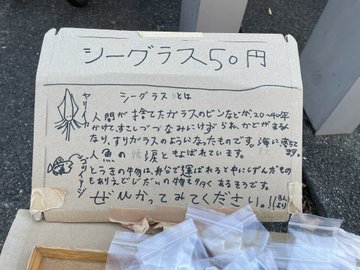 シーグラス50円
ヤリイカ
シーグラスとは
人間が捨てたガラスのビンなどが、20~40年
かけて、すこしづつなみにけずられ、かどがまるく
なり、すりガラスのようになったものです。海に落ちてます。
人魚の涙ともよばれています。
とう
きの物は、舟で運ばれるとちゅうにしずんだもの
もあり
えどじだいの物も多くあるそうです。
ぜひかってみてください。!!